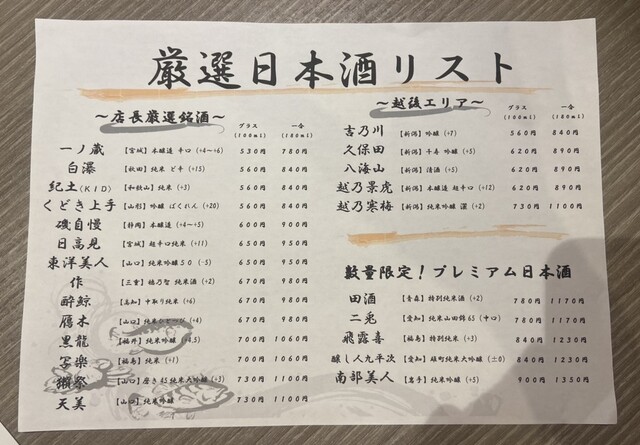 厳選日本酒リスト
～店長厳選銘酒～ グラス(100ml) 一合(180ml)
一ノ蔵 【宮城】本醸造 辛口 (+4〜+6) 530円 780円
白瀑 【秋田】純米 ど辛 (+15) 560円 840円
紀土(KID) 【和歌山】純米 (+3) 560円 840円
くどき上手 【山形】吟醸 ばくれん (+20) 560円 840円
磯自慢 【静岡】本醸造 (+4〜+5) 600円 900円
日高見 【宮城】超辛口純米 (+11) 650円 950円
東洋美人 【山口】純米吟醸50 (-5) 650円 950円
作 【三重】穂乃智 純米酒 (+2) 670円 980円
酔鯨 【高知】中取り純米 (+6) 670円 980円
雁木 【山口】純米ひとつび (+4) 670円 980円
黒龍 【福井】純米吟醸 (+4.5) 700円 1060円
写楽 【福島】純米 (+1) 700円 1060円
獺祭 【山口】磨き45純米大吟醸 (+3) 730円 1100円
天美 【山口】純米吟醸 730円 1100円
～越後エリア～ グラス(100ml) 一合(180ml)
吉乃川 【新潟】吟醸 (+7) 560円 840円
久保田 【新潟】千寿 吟醸 (+5) 620円 890円
八海山 【新潟】清酒 (+5) 620円 890円
越乃景虎 【新潟】本醸造 超辛口 (+12) 620円 890円
越乃寒梅 【新潟】純米吟醸 灑 (+2) 730円 1100円
数量限定！プレミアム日本酒
田酒 【青森】特別純米 (+2) 780円 1170円
二兎 【愛知】純米山田錦65 (中口) 780円 1170円
飛露喜 【福島】特別純米 (+3) 840円 1230円
醸し人九平次 【愛知】雄町純米大吟醸 (±0) 840円 1230円
南部美人 【岩手】純米吟醸 (+5) 900円 1350円